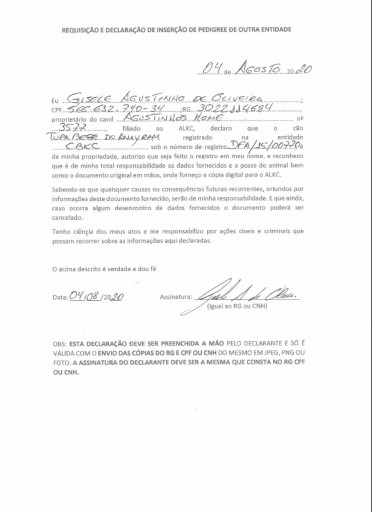 REQUISIÇÃO E DECLARAÇÃO DE INSERÇÃO DE PEDIGREE DE OUTRA ENTIDADE
04 de AGOSTO 2020
Eu GISELE AGUSTINHO DE OLIVEIRA ;
CPF 566.632.740-34 ;RG 3022114684 ;
proprietário do canil AGUSTINHOS HOME nº
3577 filiado ao ALKC, declaro que o cão
TUPA BEBE DO ANAYRAM registrado na entidade
CBKC sob o número de registro DFA/15/00720
de minha propriedade, autorizo que seja feito o registro em meu nome, e reconheço
que é de minha total responsabilidade os dados fornecidos e a posse do animal bem
como o documento original em mãos, onde forneço a cópia digital para o ALKC.
Sabendo-se que quaisquer causas ou consequências futuras recorrentes, oriundos por
informações deste documento fornecido, serão de minha responsabilidade. E que ainda,
caso ocorra algum desencontro de dados fornecidos o documento poderá ser
cancelado.
Tenho ciência dos meus atos e me responsabilizo por ações cíveis e criminais que
possam recorrer sobre as informações aqui declaradas.
O acima descrito é verdade e dou fé
Data: 04/08/2020 Assinatura:
(Igual ao RG ou CNH)
OBS: ESTA DECLARAÇÃO DEVE SER PREENCHIDA A MÃO PELO DECLARANTE E SÓ É
VÁLIDA COM O ENVIO DAS CÓPIAS DO RG E CPF OU CNH DO MESMO EM JPEG, PNG OU
FOTO. A ASSINATURA DO DECLARANTE DEVE SER A MESMA QUE CONSTA NO RG CPF
OU CNH.